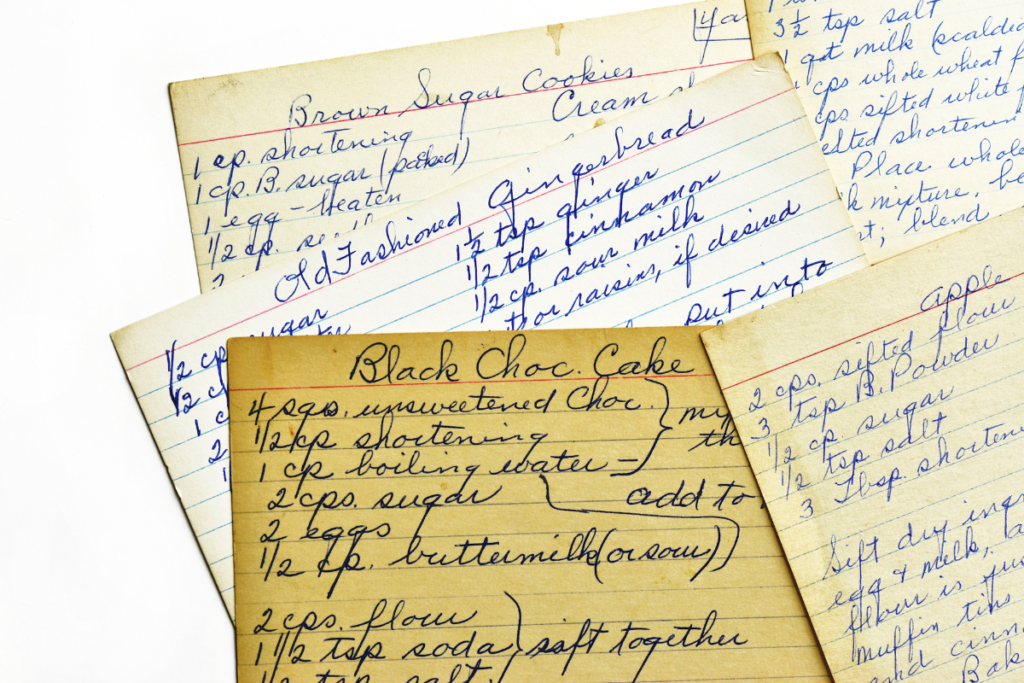 Brown Sugar Cookies
Cream
1 cp. shortening
1 cp. B. sugar (packed)
1 egg - beaten
1/2 cp.
3 1/2 tsp salt
1 qt milk
cps whole wheat
cps sifted white
Place whole
mixture,
blend
Old Fashioned Gingerbread
1/2 cp sugar
1/2
1 c
2
1 1/2 tsp ginger
1/2 tsp cinnamon
1/2 cp. sour milk
or raisins, if desired
put in to
Black Choc. Cake
4 sqs. unsweetened Choc.
1/2 cp shortening
1 cp boiling water -
2 cps. sugar
add to
2 eggs
1/2 cp. buttermilk (or sour)
2 cps. flour
1 1/2 tsp soda
sift together
tsp salt
apple
2 cps. sifted flour
3 tsp B. Powder
1/2 cp. sugar
1/2 tsp salt
3 Tbsp. shorteni
Sift dry ingr
egg & milk, a
flour is
muffin tins
and cinn
Bak